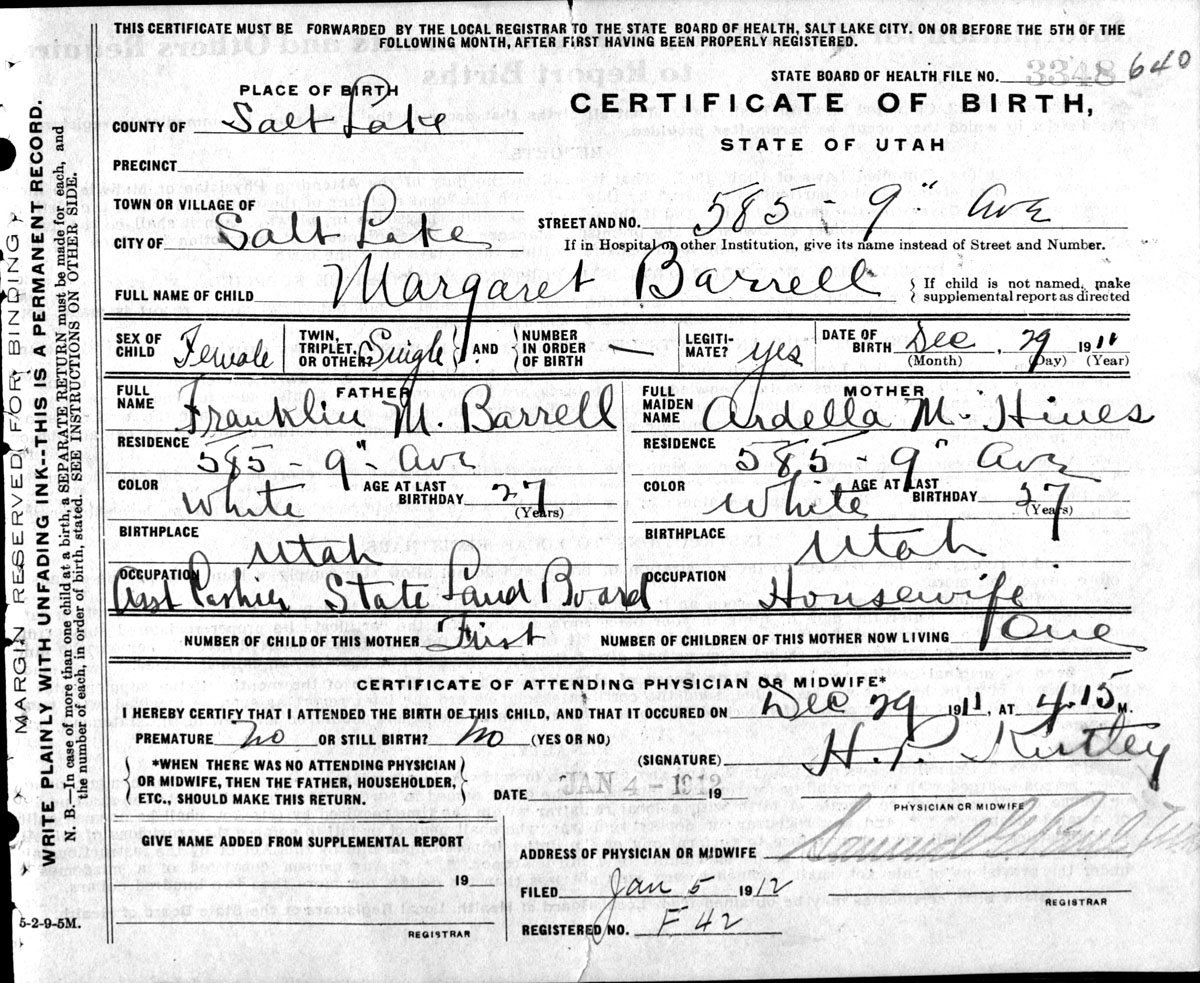 THIS CERTIFICATE MUST BE FORWARDED BY THE LOCAL REGISTRAR TO THE STATE BOARD OF HEALTH, SALT LAKE CITY, ON OR BEFORE THE 5TH OF THE
FOLLOWING MONTH, AFTER FIRST HAVING BEEN PROPERLY REGISTERED.
STATE BOARD OF HEALTH FILE NO. 3348 640
PLACE OF BIRTH
CERTIFICATE OF BIRTH,
COUNTY OF Salt Lake
STATE OF UTAH
PRECINCT
TOWN OR VILLAGE OF
STREET AND NO. 585 - 9" Ave
CITY OF Salt Lake
If in Hospital or other Institution, give its name instead of Street and Number.
FULL NAME OF CHILD Margaret Barrell
If child is not named, make
supplemental report as directed
SEX OF CHILD Female
TWIN, TRIPLET, OR OTHER? Single AND NUMBER IN ORDER OF BIRTH —
LEGITI-MATE? yes
DATE OF BIRTH Dec, 29 1911
(Month) (Day) (Year)
FATHER
FULL NAME Franklin M. Barrell
RESIDENCE 585 - 9" Ave
COLOR White AGE AT LAST BIRTHDAY 27
(Years)
BIRTHPLACE Utah
OCCUPATION Asst Cashier State Land Board
MOTHER
FULL MAIDEN NAME Ardella M. Hines
RESIDENCE 585 - 9" Ave
COLOR White AGE AT LAST BIRTHDAY 27
(Years)
BIRTHPLACE Utah
OCCUPATION Housewife
NUMBER OF CHILD OF THIS MOTHER First NUMBER OF CHILDREN OF THIS MOTHER NOW LIVING One
CERTIFICATE OF ATTENDING PHYSICIAN OR MIDWIFE*
I HEREBY CERTIFY THAT I ATTENDED THE BIRTH OF THIS CHILD, AND THAT IT OCCURED ON Dec 29 1911, AT 4.15 M.
PREMATURE No OR STILL BIRTH? No (YES OR NO)
(SIGNATURE) H. P. Kirtley
*WHEN THERE WAS NO ATTENDING PHYSICIAN
OR MIDWIFE, THEN THE FATHER, HOUSEHOLDER,
ETC., SHOULD MAKE THIS RETURN.
DATE JAN 4 - 1912 19
PHYSICIAN OR MIDWIFE
GIVE NAME ADDED FROM SUPPLEMENTAL REPORT
19
REGISTRAR
ADDRESS OF PHYSICIAN OR MIDWIFE
Samuel G. Paul
FILED Jan 5 1912
REGISTRAR
REGISTERED NO. F 42
5-2-9-5M.
MARGIN RESERVED FOR BINDING
WRITE PLAINLY WITH UNFADING INK--THIS IS A PERMANENT RECORD.
N. B.—In case of more than one child at a birth, a SEPARATE RETURN must be made for each, and
the number of each, in order of birth, stated. SEE INSTRUCTIONS ON OTHER SIDE.